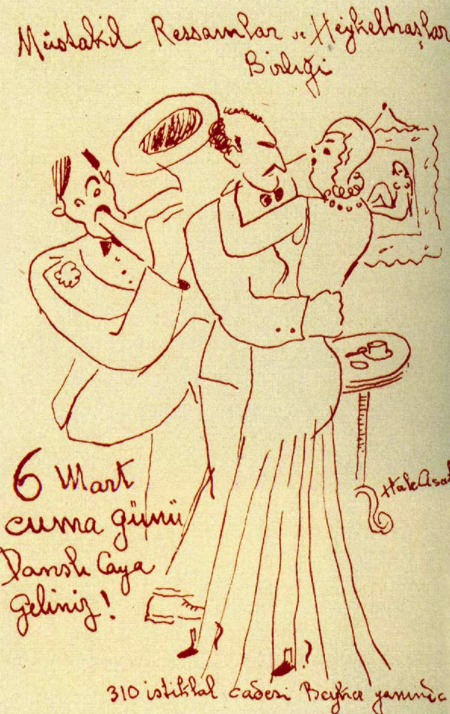 Müstakil Ressamlar ve Heykeltraşlar
Birliği
6 Mart
cuma günü
Danslı Çaya
geliniz!
Hale Asaf
310 istiklal cadesi Beyker yanında